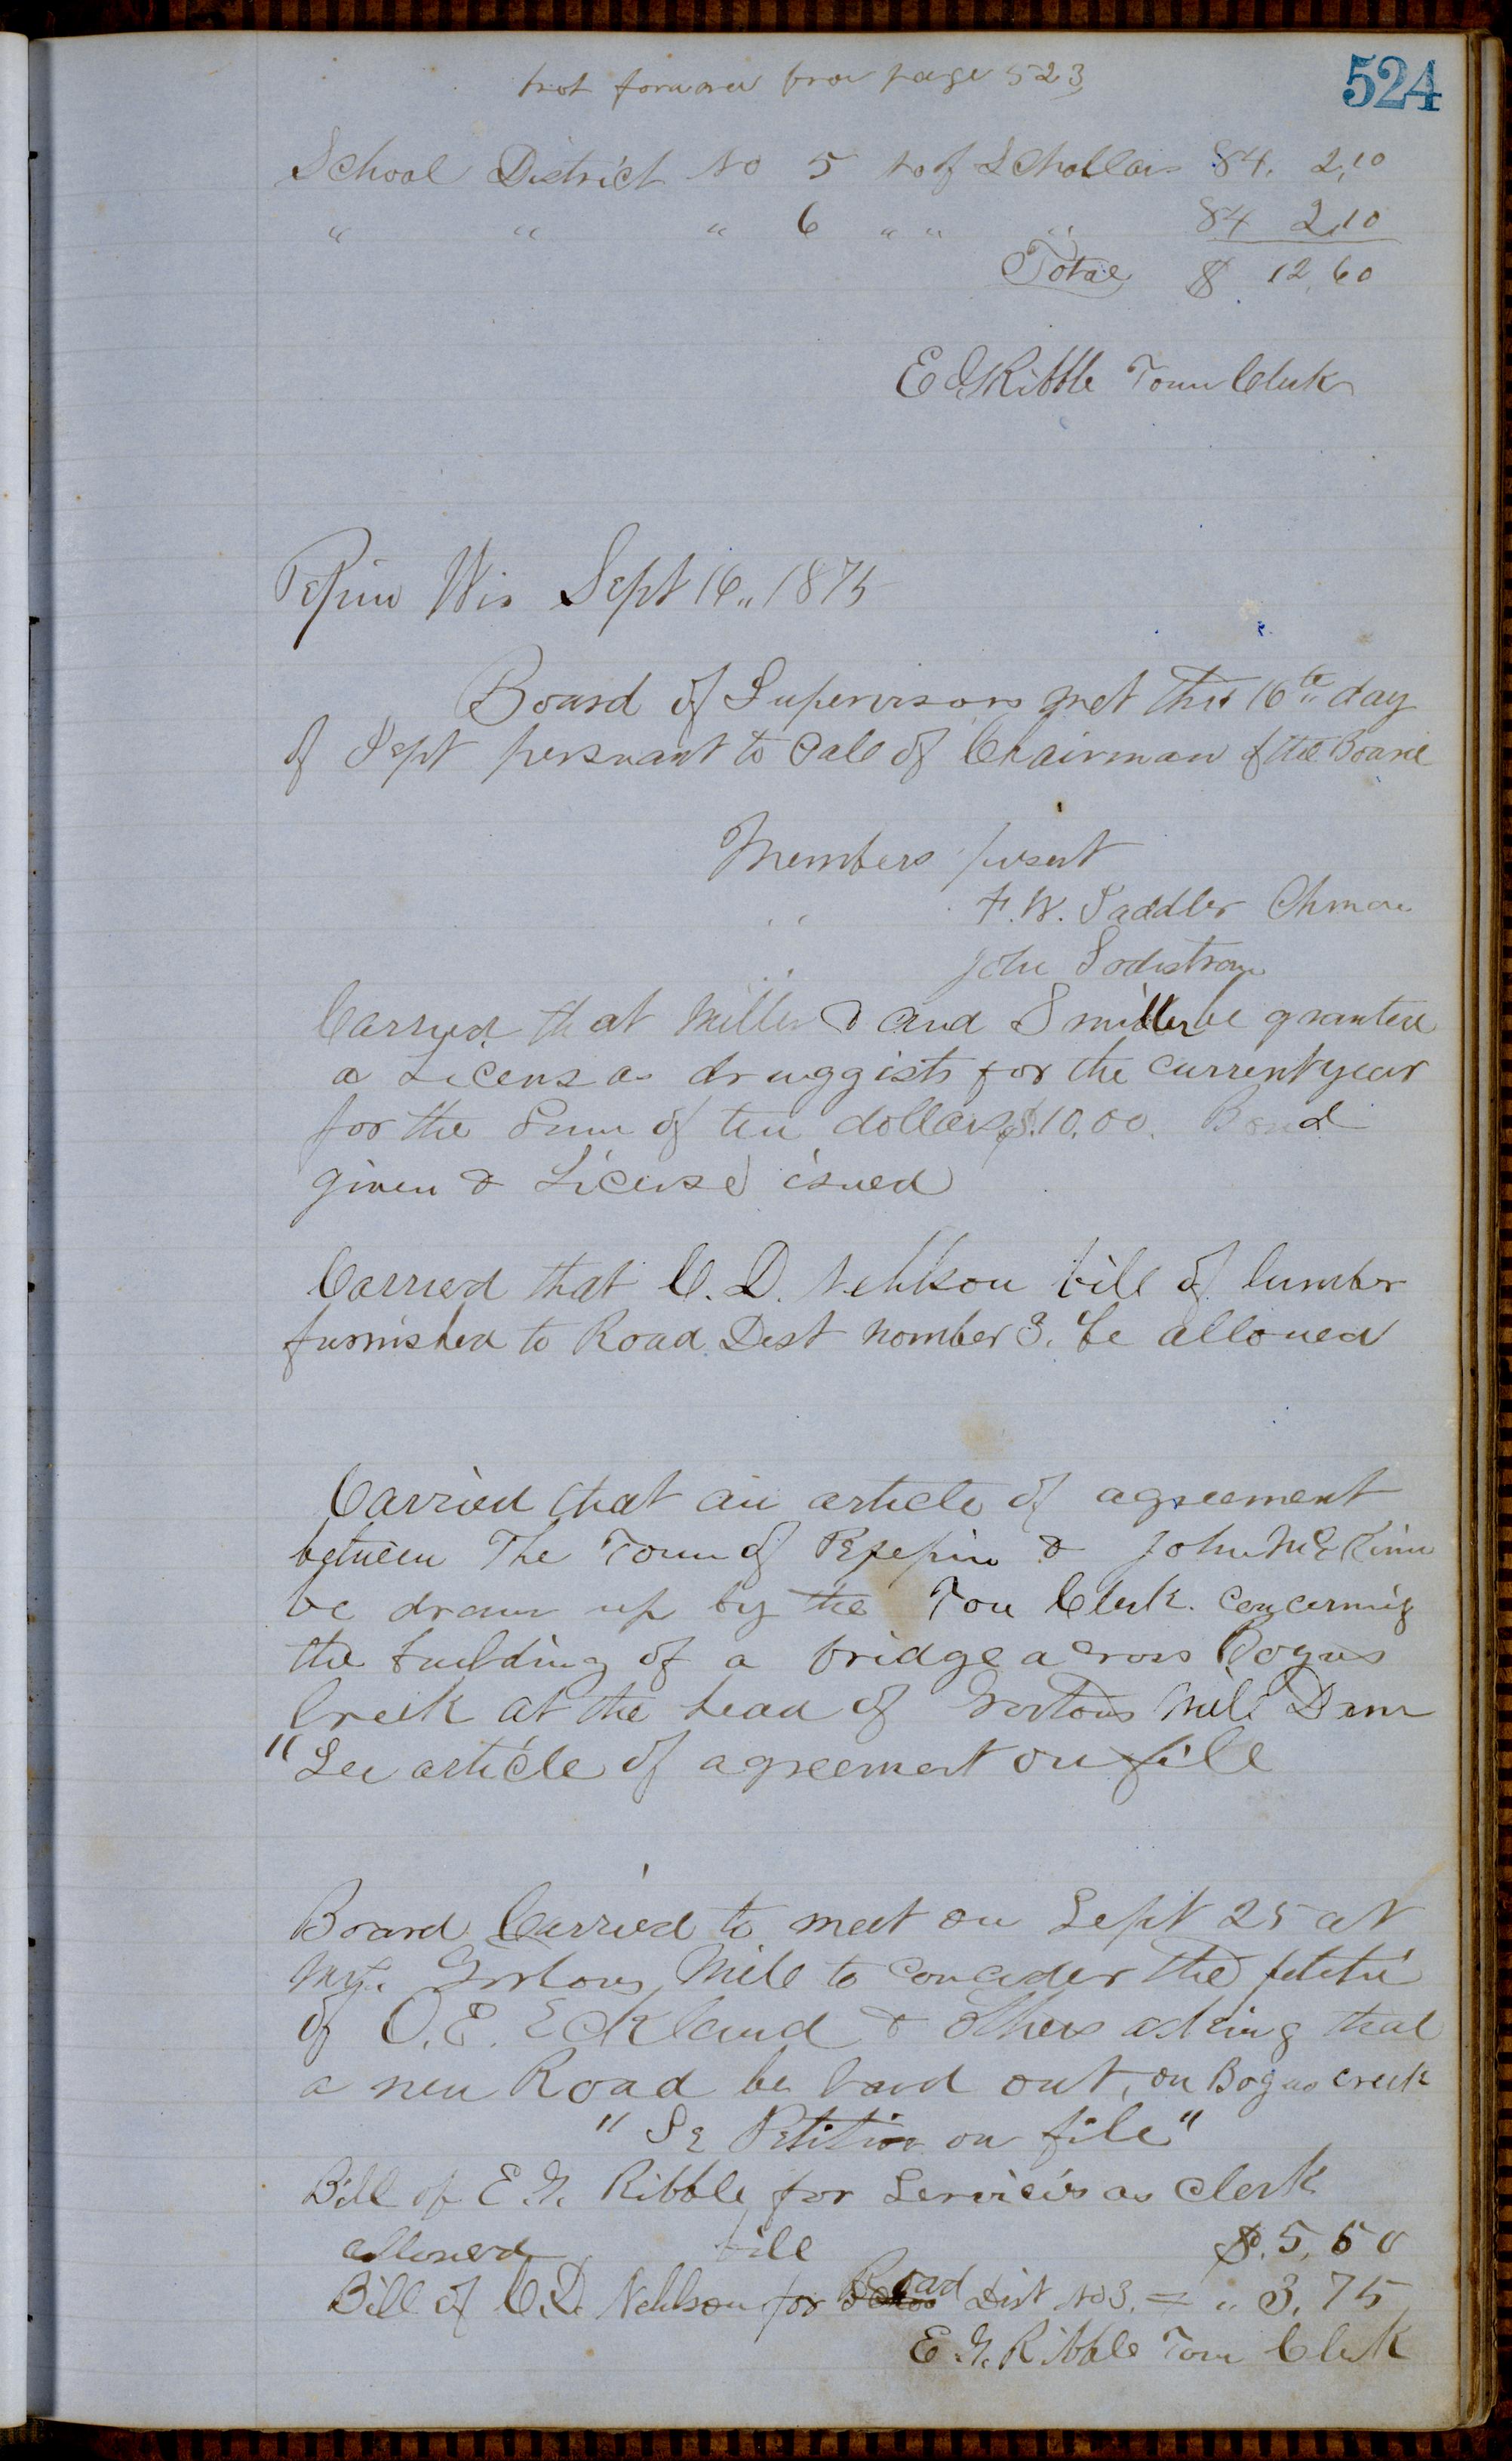 524
brot forward from page 523
School District No 5 no of Schollars 84. 2,10
" " " 6 " " " 84 2,10
Total $ 12,60
E G Ribble Town Clerk
Pepin Wis Sept 16,, 1875
Board of Supervisors met this 16th day
of Sept persuant to Call of Chairman of the Board
Members present
" F. W. Saddler Chman
" John Sodistrom
Carried that Miller & and Smith be granted
a Licens as druggists for the current year
for the Sum of ten dollars $.10.00. Bond
given & License issued
Carried that C. D. Nehlson bill of lumber
furnished to Road Dist nomber 3. be allowed
Carried that an article of agreement
between The Town of Pepin & John
be drawn up by the Ton Clerk concerning
the building of a bridge across Bogus
Creek at the head of Gortons Mill Dam
"See article of agreement on file
Board Carried to meet on Sept 25 at
Gortons Mill to concider the petiti
of O. E. Ecklund & others asking that
a new Road be laid out, on Bogus creek
" Se Petition on file"
Bill of E. G. Ribble for Servicies as Clerk
allowed bill $. 5, 50
Bill of C. D. Nehlson for Road Dist No 3. = " 3, 75
E. G. Ribble Town Clerk